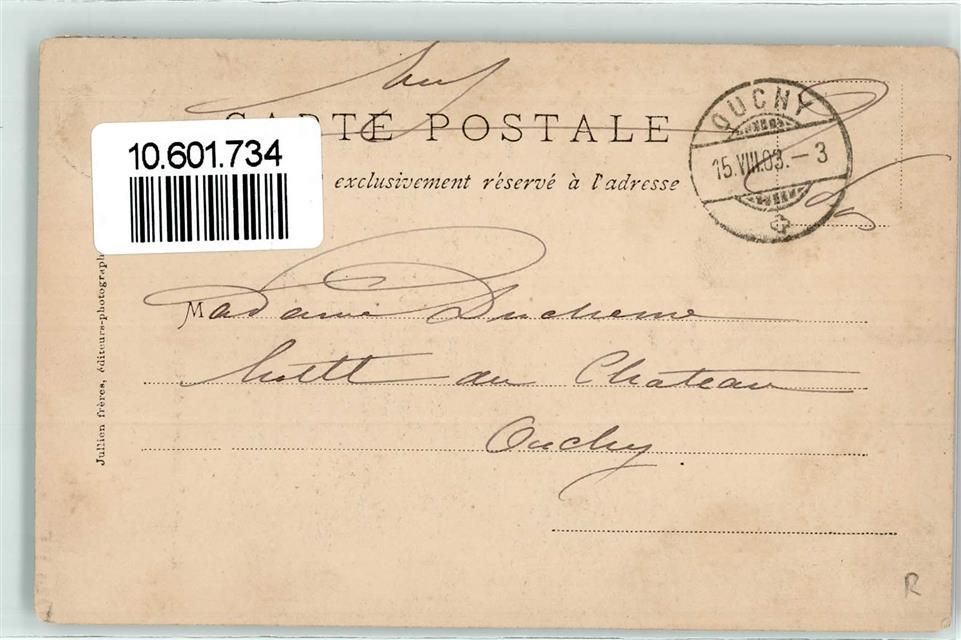 CARTE POSTALE
10.601.734
exclusivement réservé à l'adresse
OUCHY
15.VIII.03.–3
Madame Duchesne
hotel du Chateau
Ouchy
Jullien frères, éditeurs-photograph
R